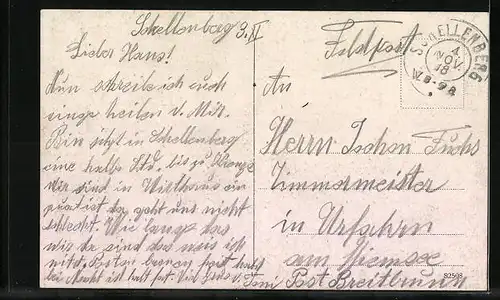 Schellenberg 3. XI
Lieber Hans!
Nun schreibe ich euch
einge Zeilen v. Mir.
Bin jetzt in Schellenberg
eine halbe Std. bis zu Grenze
Wir sind in Wirthaus ein
quatist da geht uns nicht
schlecht. Wie lang das
wir da sind das weis ich
nitd. Posten
bei Nacht ist halt kalt. Viel Grüs v. Toni
Feldpost
SCHELLENBERG
4
NOV.
18
An
Herrn Fuchs
Zimmermeister
in Urfahrn
am Kiemsee
Post Breitbrunn
82508